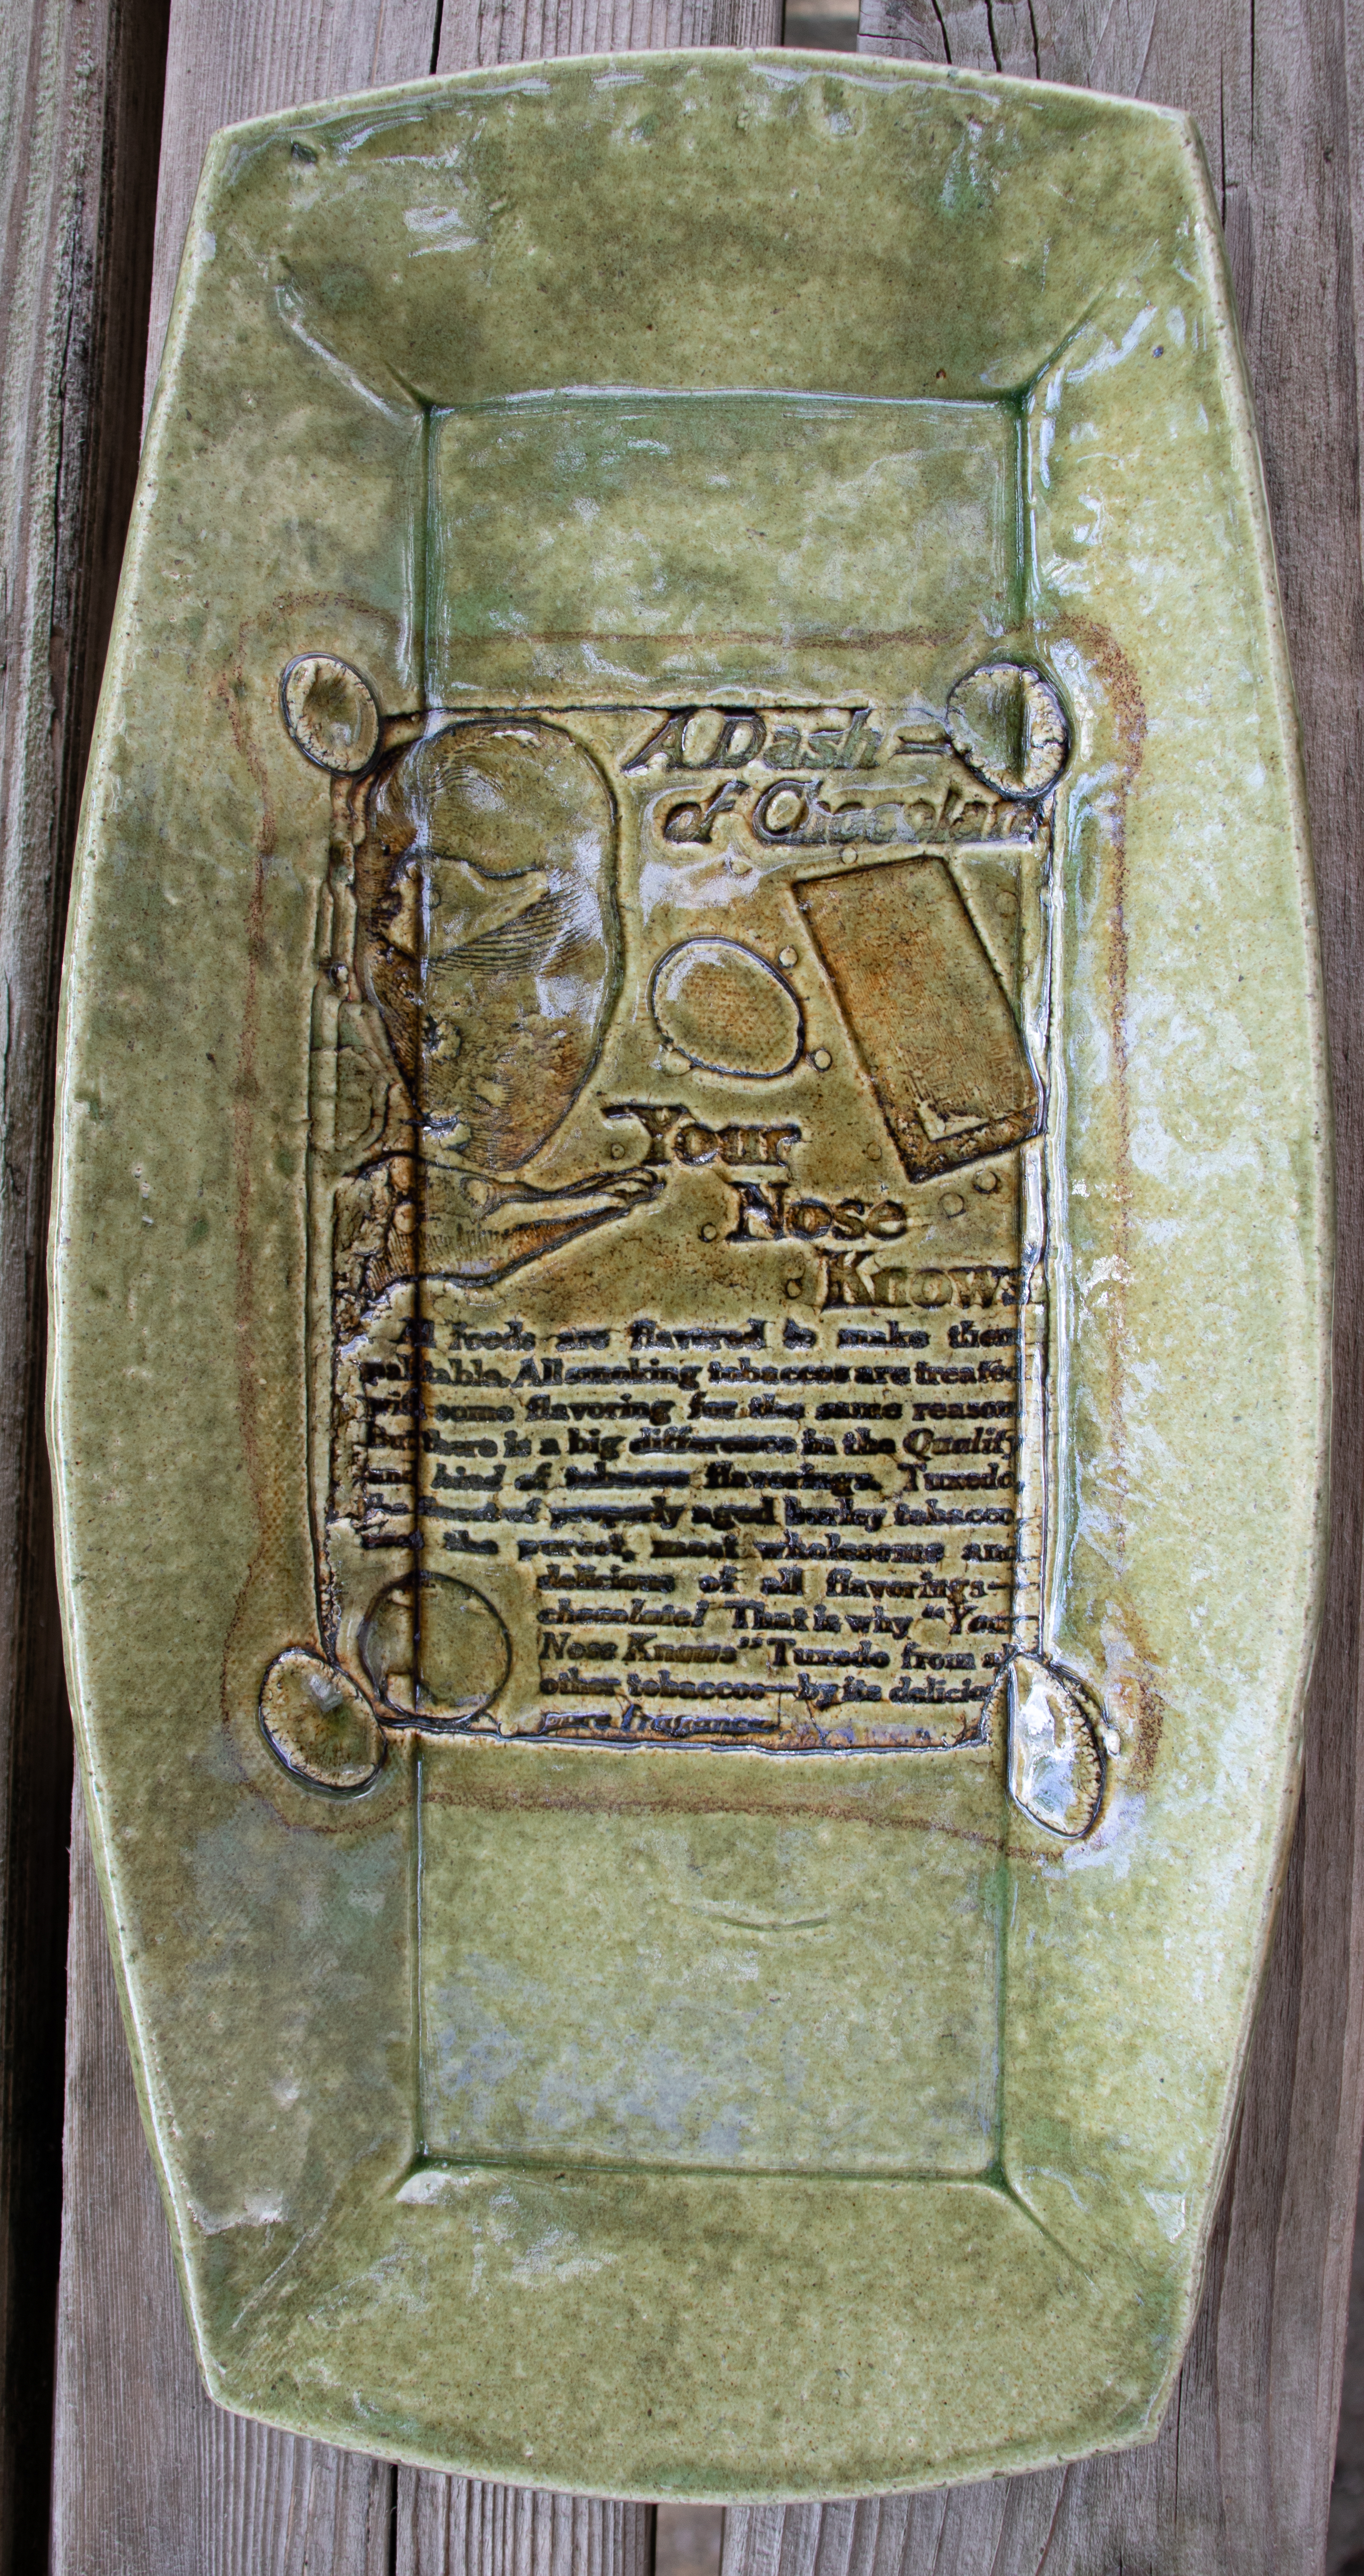 A Dash =
of Chocolate
Your
Nose
Knows
All foods are flavored to make them
palatable. All smoking tobaccos are treated
with some flavoring for the same reason
But there is a big difference in the Quality
and kind of tobacco flavorings. Tuxedo,
the finest of properly aged burley tobacco
uses the purest, most wholesome and
delicious of all flavorings—
chocolate! That is why "Your
Nose Knows" Tuxedo from all
other tobaccos—by its delicious
pure fragrance